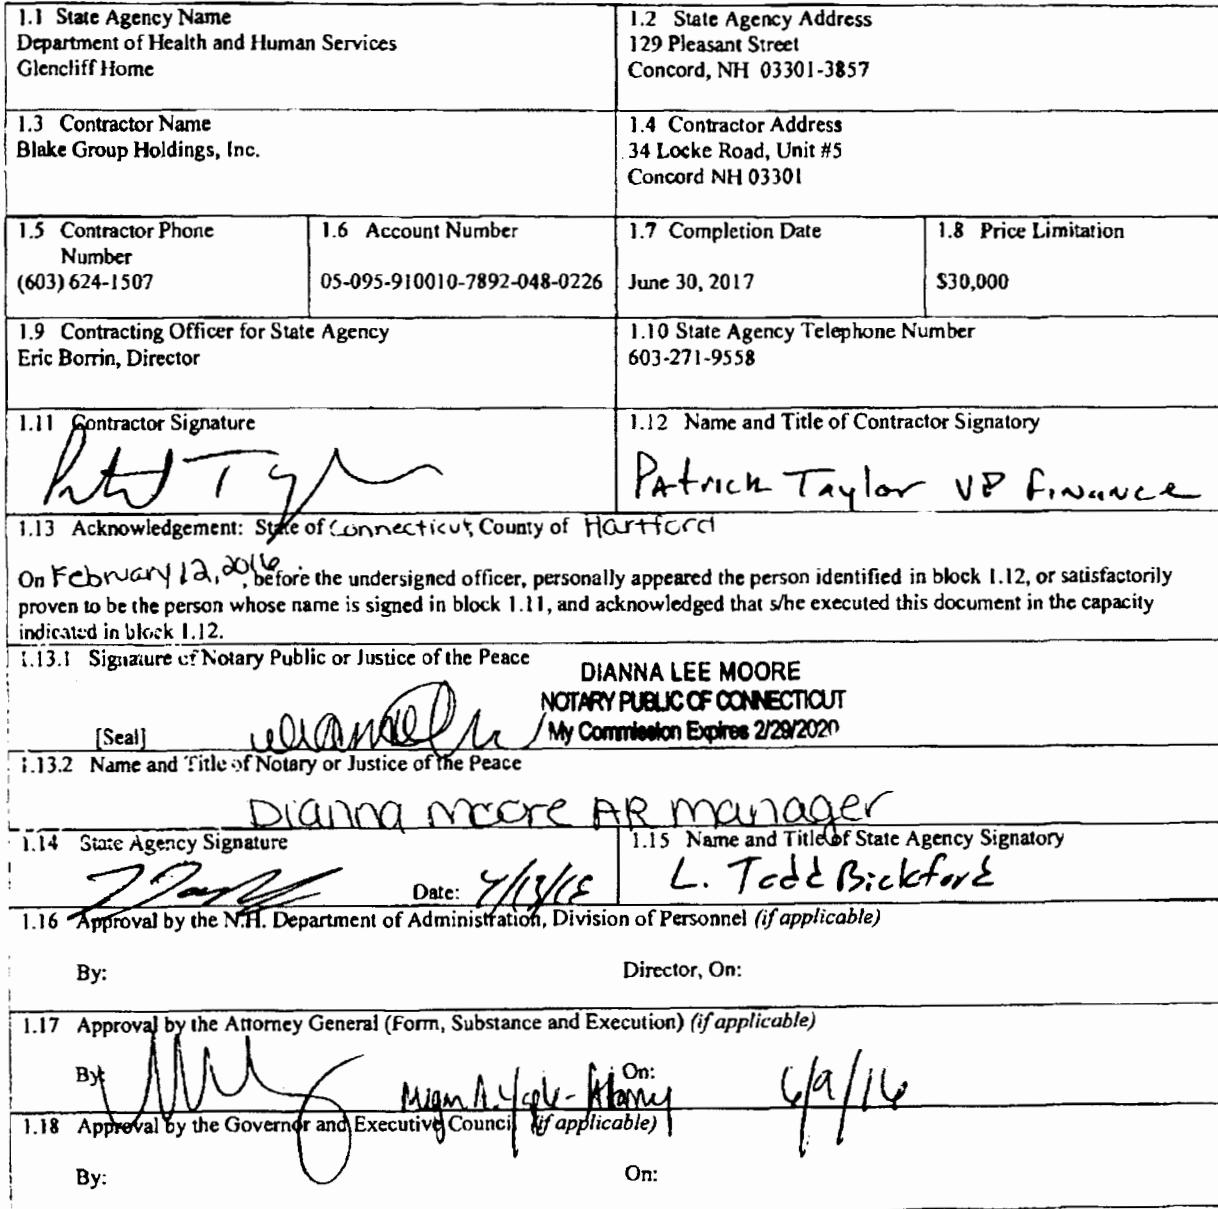 1.1 State Agency Name
Department of Health and Human Services
Glencliff Home
1.2 State Agency Address
129 Pleasant Street
Concord, NH 03301-3857
1.3 Contractor Name
Blake Group Holdings, Inc.
1.4 Contractor Address
34 Locke Road, Unit #5
Concord NH 03301
1.5 Contractor Phone
Number
(603) 624-1507
1.6 Account Number
05-095-910010-7892-048-0226
1.7 Completion Date
June 30, 2017
1.8 Price Limitation
$30,000
1.9 Contracting Officer for State Agency
Eric Borrin, Director
1.10 State Agency Telephone Number
603-271-9558
1.11 Contractor Signature
1.12 Name and Title of Contractor Signatory
Patrick Taylor VP Finance
1.13 Acknowledgement: State of Connecticut, County of Hartford
On February 12, 2016, before the undersigned officer, personally appeared the person identified in block 1.12, or satisfactorily
proven to be the person whose name is signed in block 1.11, and acknowledged that s/he executed this document in the capacity
indicated in block 1.12.
1.13.1 Signature of Notary Public or Justice of the Peace
DIANNA LEE MOORE
NOTARY PUBLIC OF CONNECTICUT
My Commission Expires 2/29/2020
[Seal]
1.13.2 Name and Title of Notary or Justice of the Peace
Dianna Moore AR Manager
1.14 State Agency Signature
Date:
1.15 Name and Title of State Agency Signatory
L. Todd Bickford
1.16 Approval by the N.H. Department of Administration, Division of Personnel (if applicable)
By:
Director, On:
1.17 Approval by the Attorney General (Form, Substance and Execution) (if applicable)
By:
On:
Attorney
6/9/16
1.18 Approval by the Governor and Executive Council (if applicable)
By:
On: